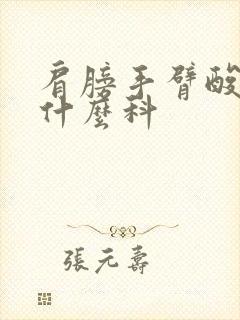 肩膀手臂酸
什麼科
張元壽